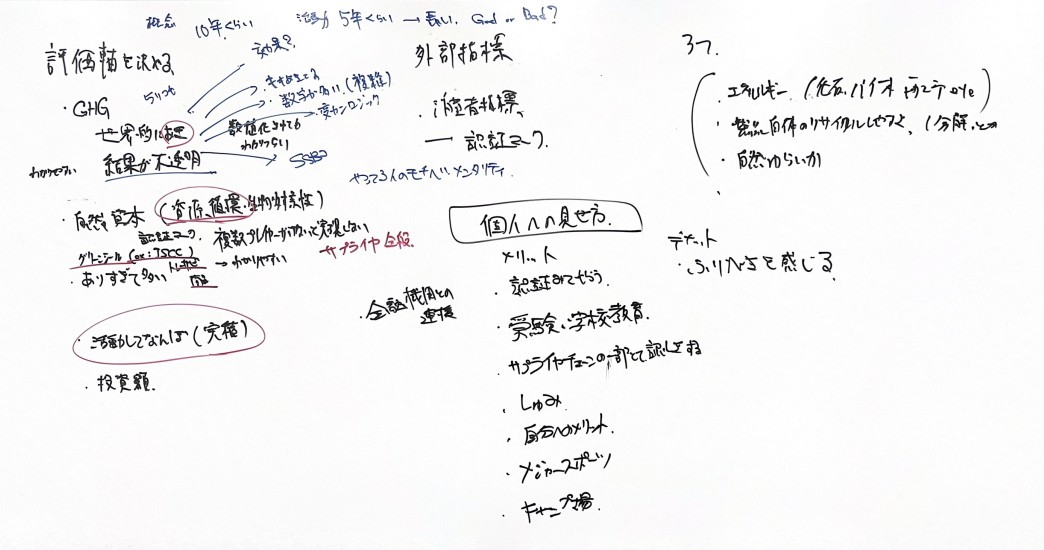 概念 10年くらい 活動 5年くらい → 長い. Good or Bad?
評価軸を決める
・GHG
世界的にはあき
わかりやすい
結果が不透明
効果?
数字が多い(複雑)
数値化されても
わかりづらい
SSBJ
やってる人のモチベ・メンタリティ
・自然資本(資源、循環・生物多様性)
認証マーク
複数プレイヤーがいないと実現しない
サプライヤ全般
→ わかりやすい
・ありすぎて多い
・活動してなんぼ(実績)
・投資額.
外部指標
・消費者指標
― 認証マーク.
個人への見せ方.
メリット
・認証みてもらう
・受験、学校教育.
・サプライヤチェーンの一部として認識する
・しゅみ.
・自分へのメリット.
・メジャースポーツ
・キャンプ場.
・金融機関との
連携
3つ.
・エネルギー(化石、バイオ
・製品自体のリサイクル
・自然ゆらいか
デメリット
・ふりへきを感じる